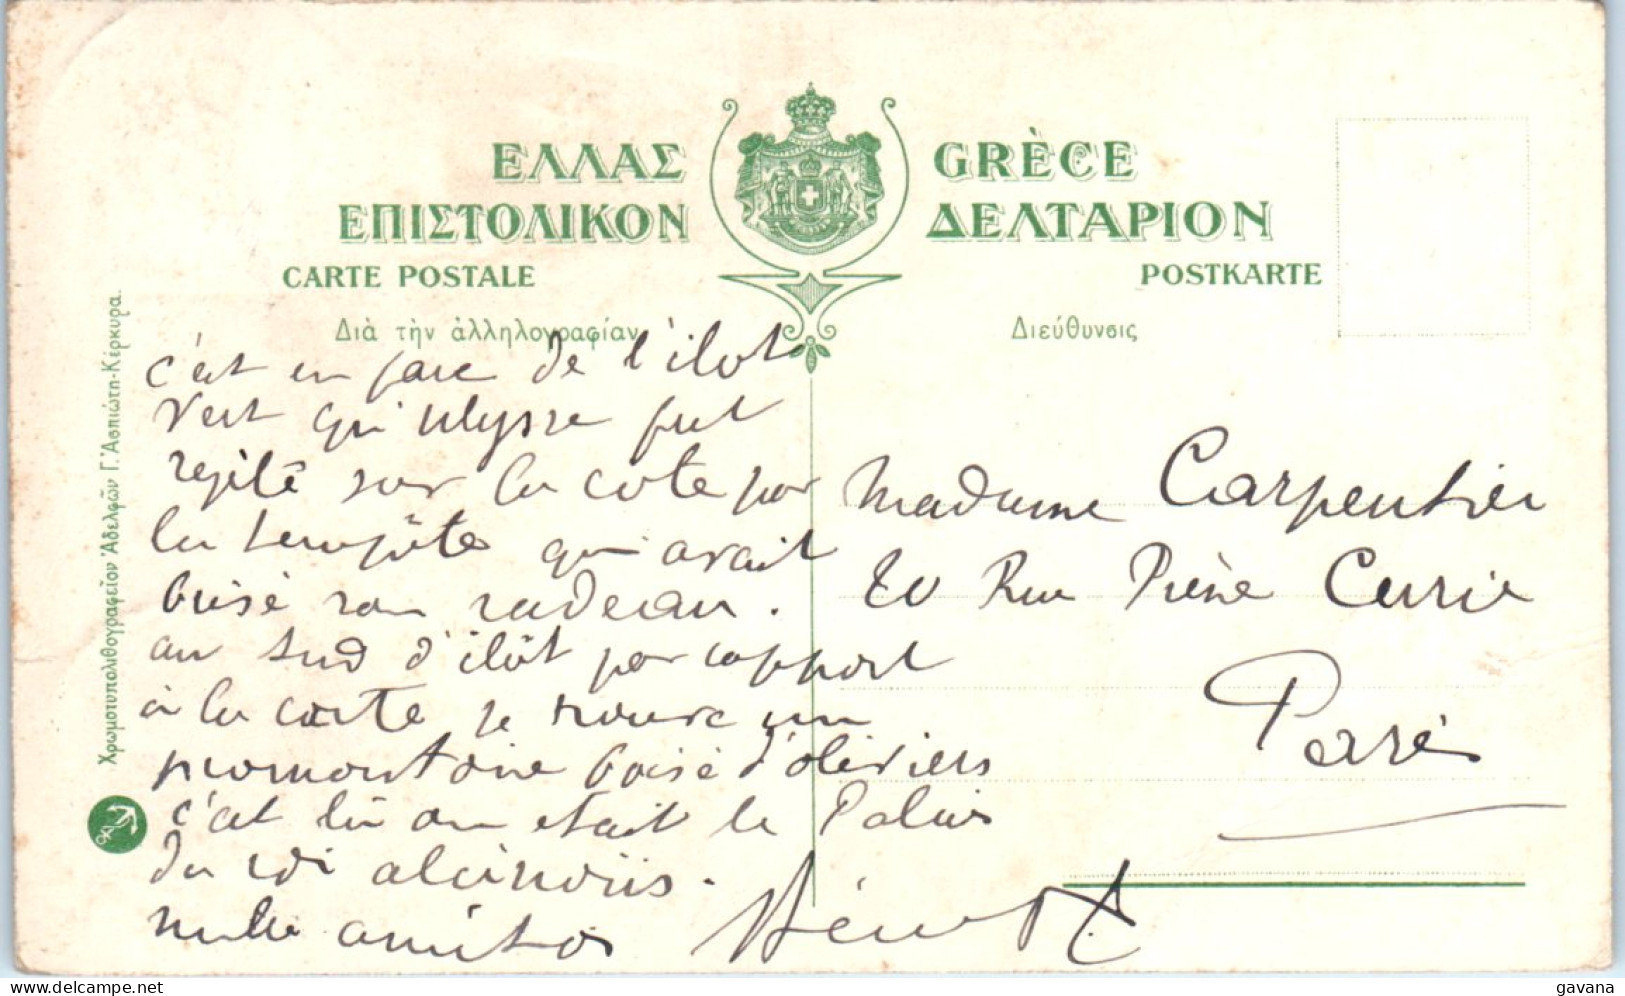 ΕΛΛΑΣ GRÈCE
ΕΠΙΣΤΟΛΙΚΟΝ ΔΕΛΤΑΡΙΟΝ
CARTE POSTALE POSTKARTE
Διὰ τὴν ἀλληλογραφίαν Διεύθυνσις
c'est en face de l'ilot
vert qu'ulysse fut
rejeté sur la cote par
la tempête qui avait
brisé son radeau.
au sud d'ilôt par rapport
à la carte se trouve un
promontoire boisé d'oliviers
c'est là ou etait le Palais
du roi alcinoüs.
mille amitiés
Madame Carpentier
20 Rue Pierre Curie
Paris
Χρωμοτυπολιθογραφεῖον Ἀδελφῶν Γ. Ἀσπιώτη-Κέρκυρα.
gavana